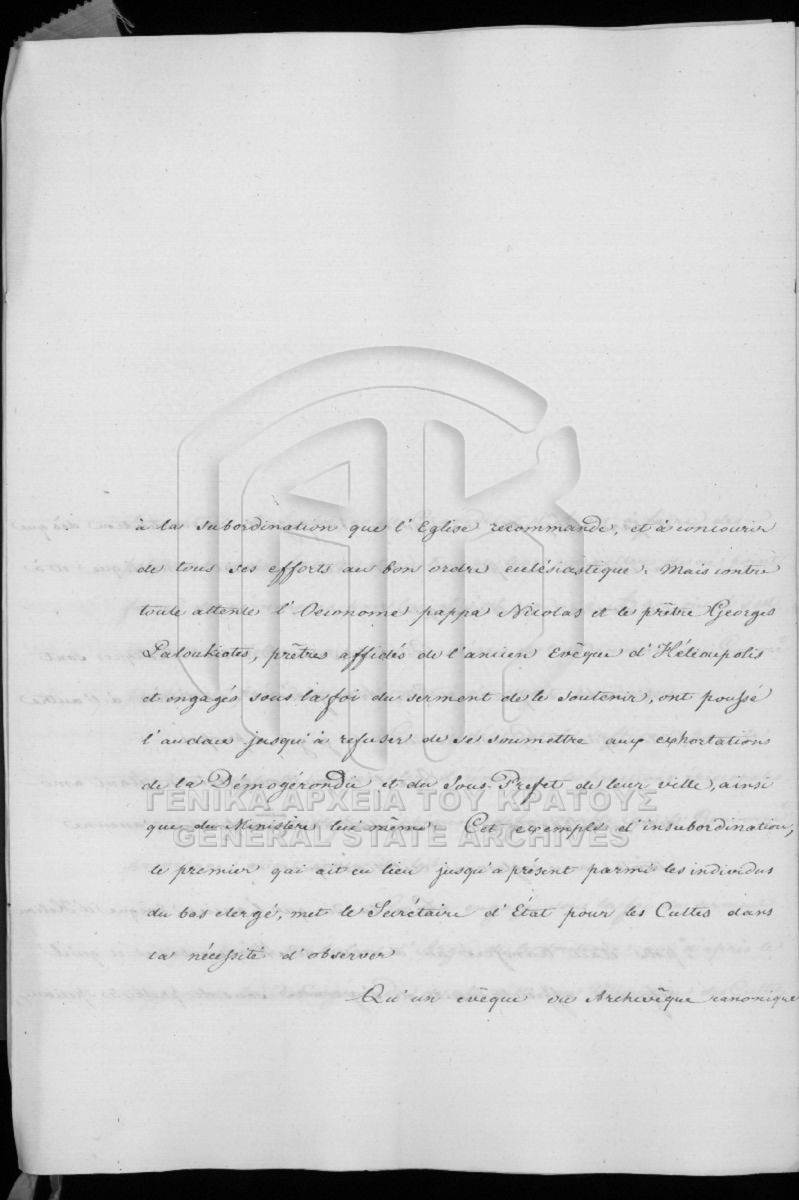 à la subordination que l'Eglise recommande, et à concourir
de tous ses efforts au bon ordre eclésiastique. Mais contre
toute attente l'Oeconome pappa Nicolas et le prêtre Georges
Paloukiotes, prêtres affidés de l'ancien Evêque d'Hélioupolis
et engagés sous la foi du serment de le soutenir, ont poussé
l'audace jusqu'à refuser de se soumettre aux exhortations
de la Démogérondie et du Sous-Prefet de leur ville, ainsi
ΓΕΝΙΚΑ ΑΡΧΕΙΑ ΤΟΥ ΚΡΑΤΟΥΣ
que du Ministère lui même. Cet exemple d'insubordination,
GENERAL STATE ARCHIVES
le premier qui ait eu lieu jusqu'à présent parmi les individus
du bas clergé, met le Secrétaire d'Etat pour les Cultes dans
la nécessité d'observer
Qu'un evêque ou Archevêque canonique